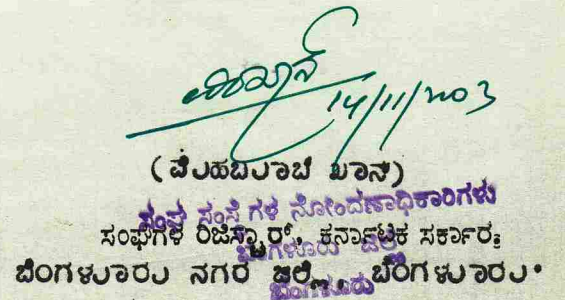 14/11/2003
(ಮೆಹಬೂಬ್ ಖಾನ್)
ಸಂಘ ಸಂಸ್ಥೆಗಳ ನೋಂದಣಾಧಿಕಾರಿಗಳು
ಸಂಘಗಳ ರಿಜಿಸ್ಟ್ರಾರ್, ಕರ್ನಾಟಕ ಸರ್ಕಾರ,
ಬೆಂಗಳೂರು ನಗರ ಜಿಲ್ಲೆ, ಬೆಂಗಳೂರು.
ಬೆಂಗಳೂರು